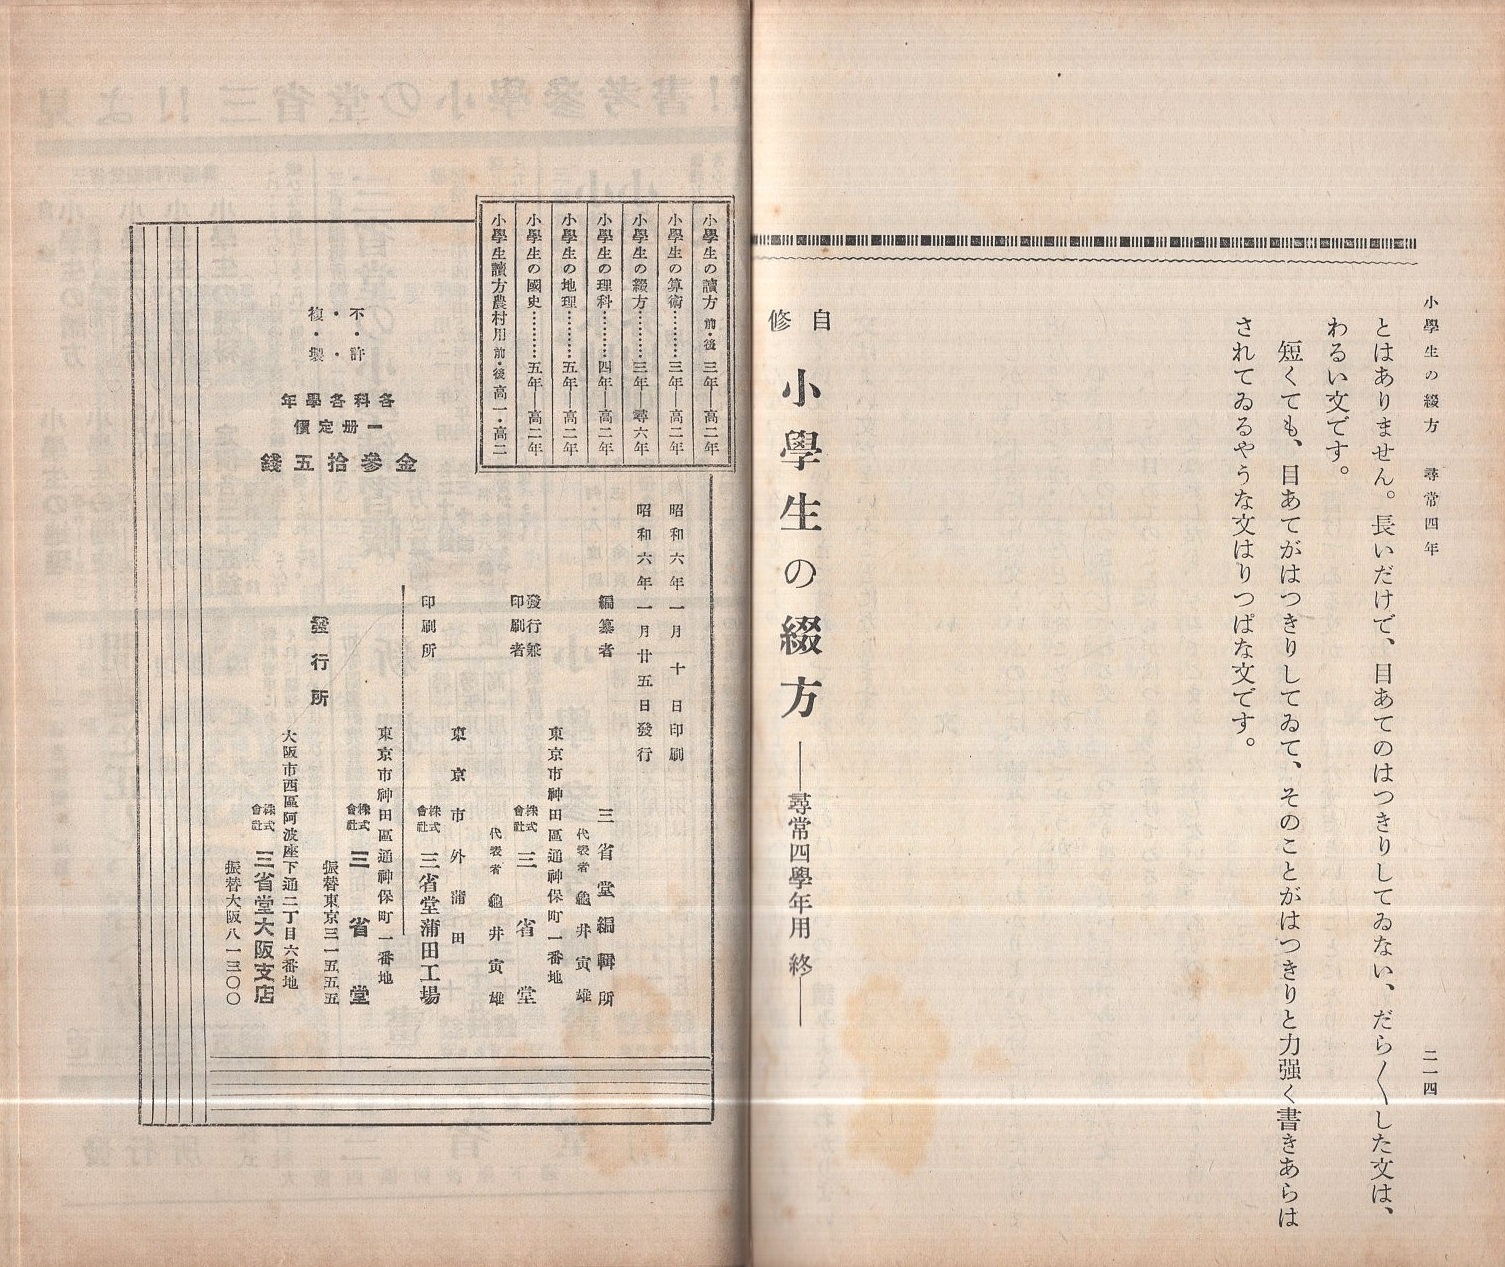 小學生の綴方　尋常四年　二一四
とはありません。長いだけで、目あてのはつきりしてゐない、だら〱した文は、
わるい文です。
短くても、目あてがはつきりしてゐて、そのことがはつきりと力强く書きあらは
されてゐるやうな文はりつぱな文です。
自修　小學生の綴方――尋常四學年用 終――
小學生の讀方 前・後 三年―高二年
小學生の算術………三年―高二年
小學生の綴方………三年―尋六年
小學生の理科………四年―高二年
小學生の地理………五年―高二年
小學生の國史………五年―高二年
小學生讀方農村用 前・後 高一・高二
昭和六年一月十日印刷
昭和六年一月廿五日發行
不・許
複・製
各科各學年
一册定價
金參拾五錢
編纂者　三省堂編輯所
代表者　龜井寅雄
東京市神田區通神保町一番地
發行兼印刷者　株式會社　三省堂
代表者　龜井寅雄
東京市外蒲田
印刷所　株式會社　三省堂蒲田工場
東京市神田區通神保町一番地
發行所　株式會社　三省堂
振替東京三一五五五
大阪市西區阿波座下通二丁目六番地
株式會社　三省堂大阪支店
振替大阪八一三〇〇